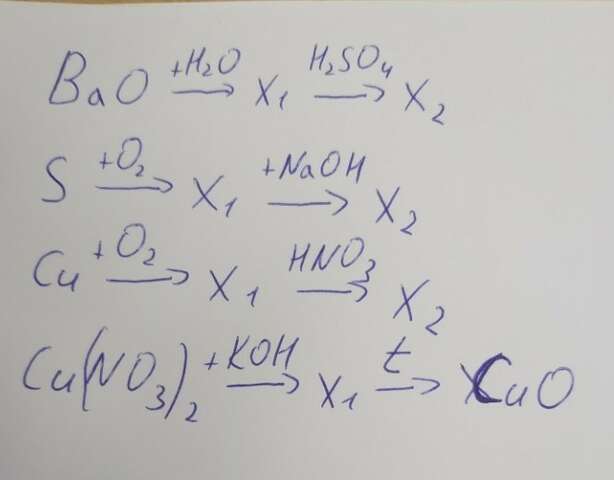 BaO +H₂O → X₁ H₂SO₄ → X₂
S +O₂ → X₁ +NaOH → X₂
Cu +O₂ → X₁ HNO₃ → X₂
Cu(NO₃)₂ +KOH → X₁ t → CuO